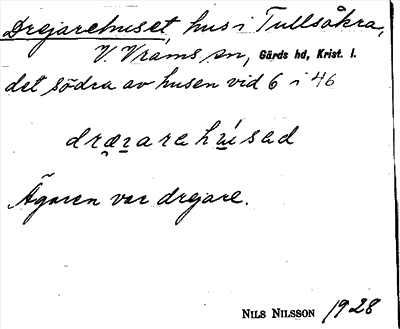 Drejarehuset, hus i Tullsåkra,
V. Vrams sn, Gärds hd, Krist. l.
det södra av husen vid 6 i 46
Ägaren var drejare.
NILS NILSSON 1928